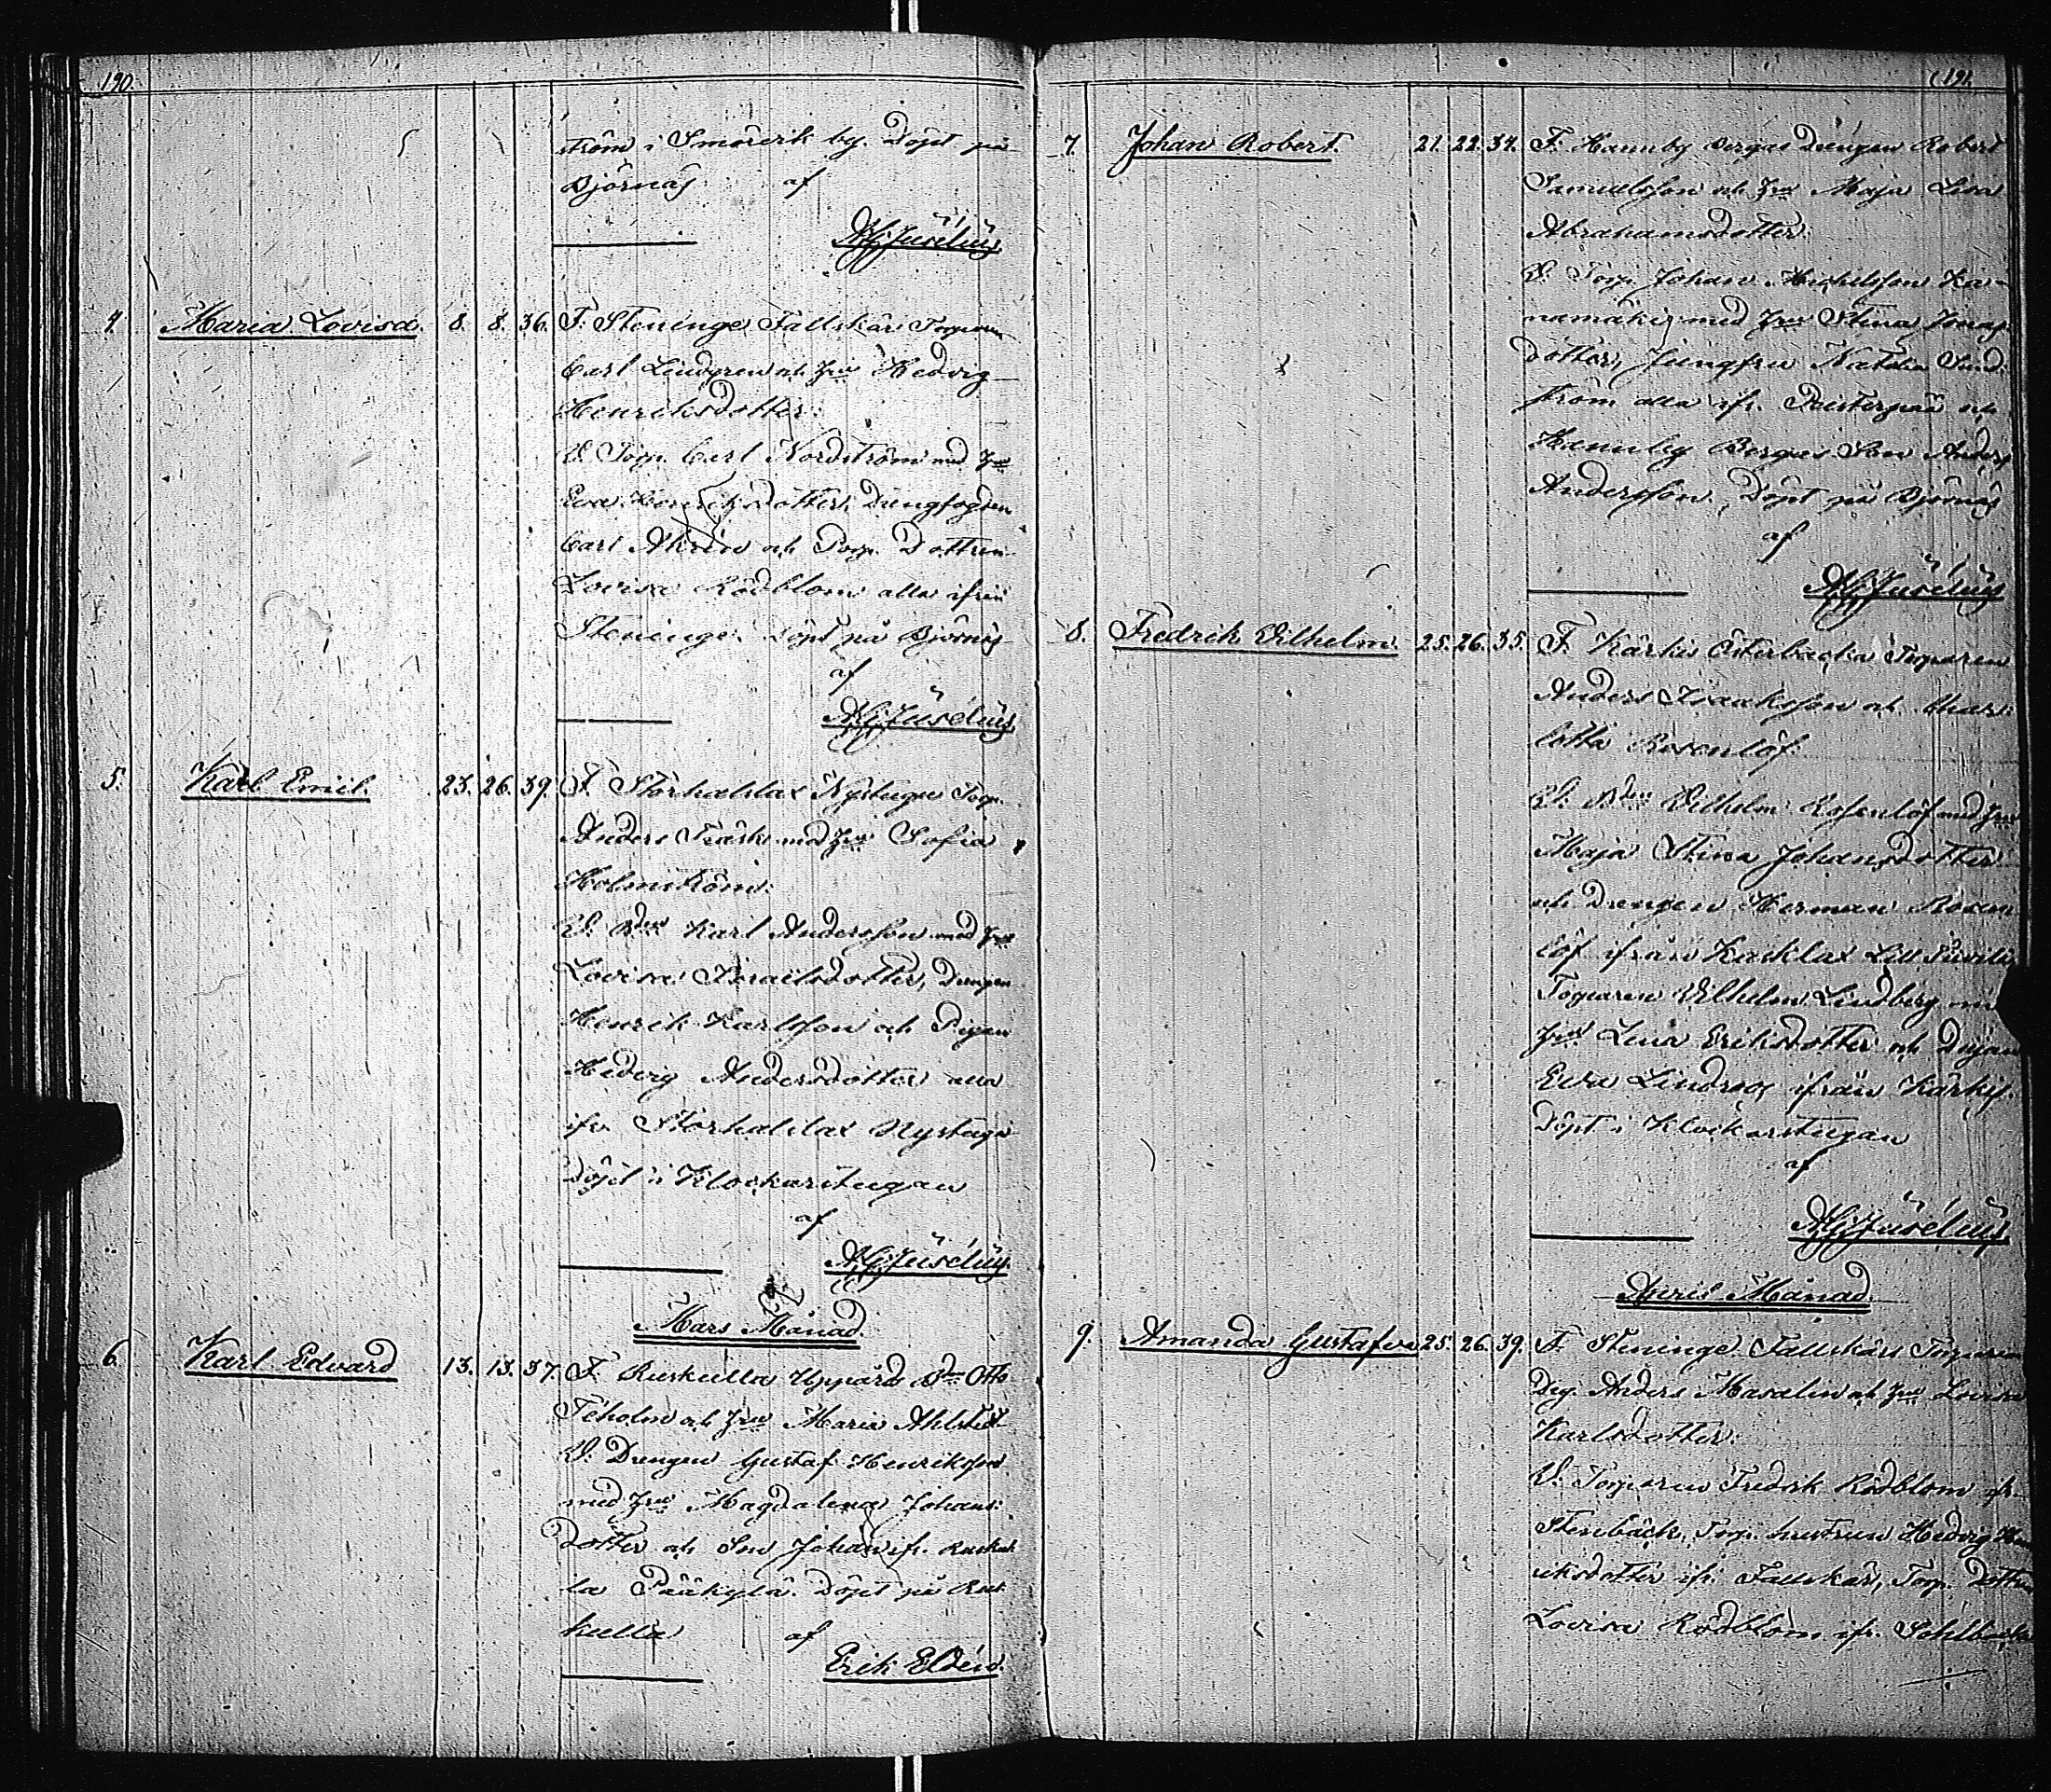 190.
ström i Smörvik by. Döpt på
Björnäs af
A G Jusélius
4. Maria Lovisa. 8. 8. 36. F. Steninge Fallskär Torparen
Carl Lindgren och Hru Hedvig
Henriksdotter:
V. Torp. Carl Nordström med Hru
Eva Henriksdotter, Drengfogden
Carl och Torp. Dottren
Lovisa Rödblom alla ifrån
Steninge. Döpt på Björnäs
af
A G Jusélius
5. Karl Emil. 23. 26. 39. F. Storhalslax Nystugu Torp.
Anders Träsk med Hru Sofia
Holmström:
V. Bden Karl Andersson med Hru
Lovisa Israelsdotter, Drengen
Henrik Karlsson och Pigan
Hedvig Andersdotter alla
ifr. Storhalslax Nystugu
Döpt i Klockarstugan
af
A G Jusélius.
Mars Månad.
6. Karl Edvard 13. 13. 37. F. Ruskulla Uppård Bden Otto
Teholm och Hru Maria Ahlstedt
V. Drengen Gustaf Henriksson
med Hru Magdalena Johans-
dotter och Son Johan ifr. Ruskul
la Pääkylä. Döpt på Rus
kulla af
Erik Eldén.
191.
7. Johan Robert. 21. 22. 34. F. Hannby Bergas Drengen Robert
Samuelsson och Hru Maja Lisa
Abrahamsdotter:
V. Torp. Johan Michelsson Ka-
namäki med Hru Stina
dotter, Jungfru Natalia Sund-
ström alla ifr. och
Hannby Bergas Son Anders
Andersson, Döpt på Björnäs
af
A G Jusélius
8. Fredrik Vilhelm. 25. 26. 35. F. Kärkis Österbacka Torparen
Anders Isaksson och Char-
lotta Rosenlöf:
V. Bden Vilhelm Rosenlöf med Hru
Maja Stina Johansdotter
och Drengen Herman Rosen
löf ifrån Karklax
Torparen Vilhelm Lindberg
Hru Lena Eriksdotter och Pigan
Eva Lindroos ifrån Kärkis.
Döpt i Klockarstugan
af
A G Jusélius
April Månad.
9. Amanda Gustafva 25. 26. 39. F. Steninge Fallskärs Torparen
Dreg. Anders Masalin och Hru Lovisa
Karlsdotter:
V. Torparen Fredrik Rödblom ifr.
Stenbäck, Torp. hustrun Hedvig Hen
riksdotter ifr. Fallskär, Torp. Dottren
Lovisa Rödblom ifr.